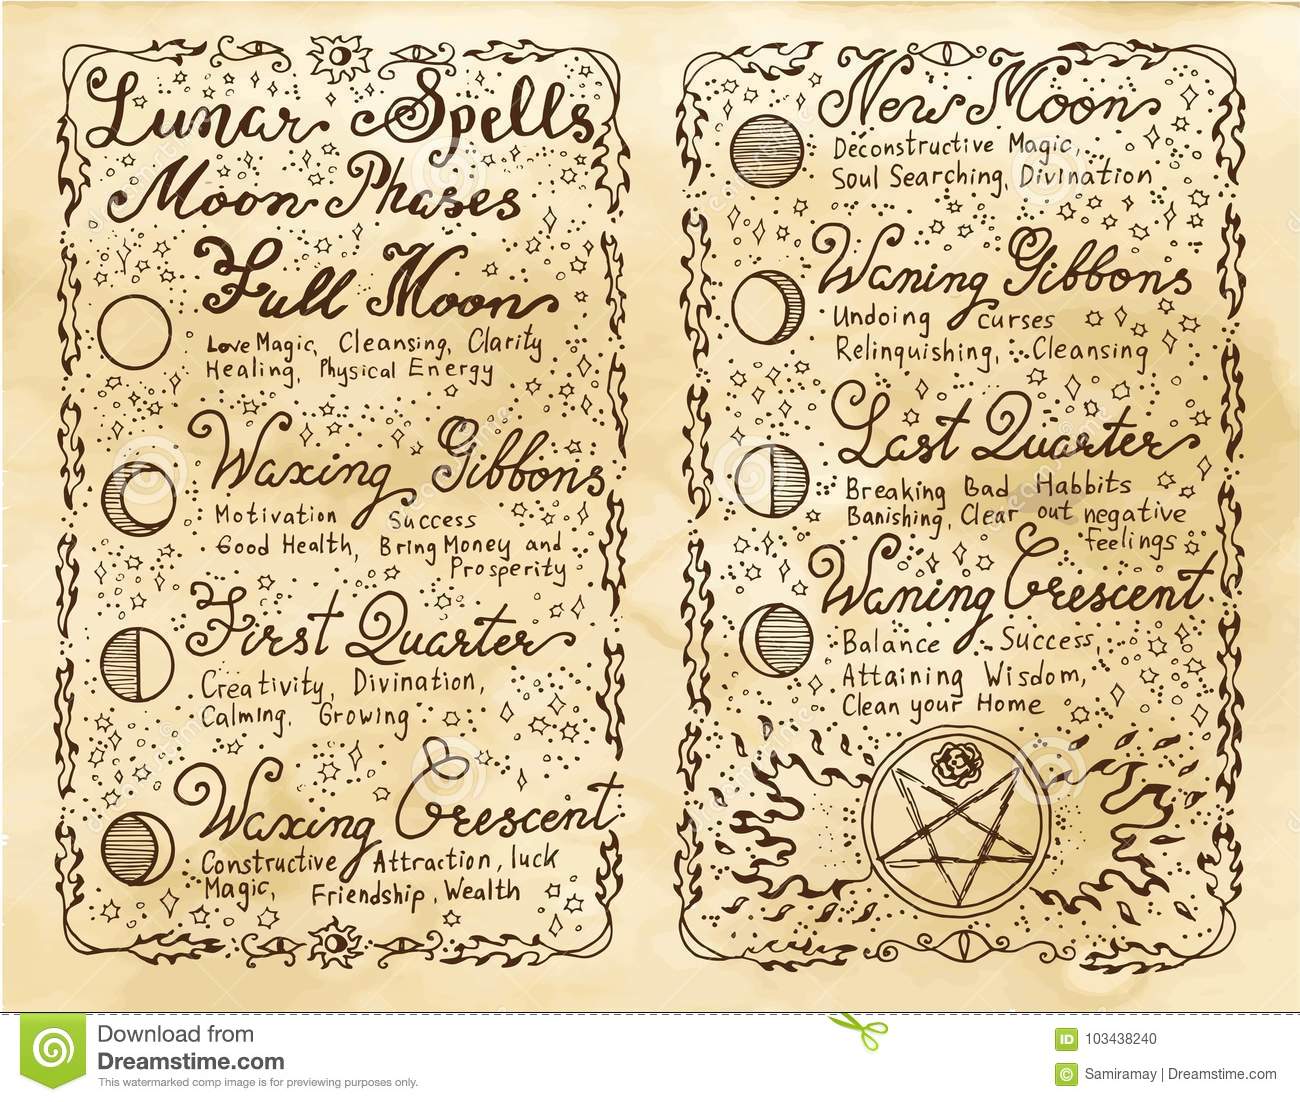 Lunar Spells
Moon Phases
Full Moon
Love Magic, Cleansing, Clarity
Healing, Physical Energy
Waxing Gibbons
Motivation Success
Good Health, Bring Money and
Prosperity
First Quarter
Creativity, Divination,
Calming, Growing
Waxing Crescent
Constructive Attraction, luck
Magic, Friendship, Wealth
New Moon
Deconstructive Magic,
Soul Searching, Divination
Waning Gibbons
Undoing curses
Relinquishing, Cleansing
Last Quarter
Breaking Bad Habbits
Banishing, Clear out negative
feelings
Waning Crescent
Balance Success,
Attaining Wisdom,
Clean your Home
Download from
Dreamstime.com
This watermarked comp image is for previewing purposes only.
ID 103438240
© Samiramay | Dreamstime.com